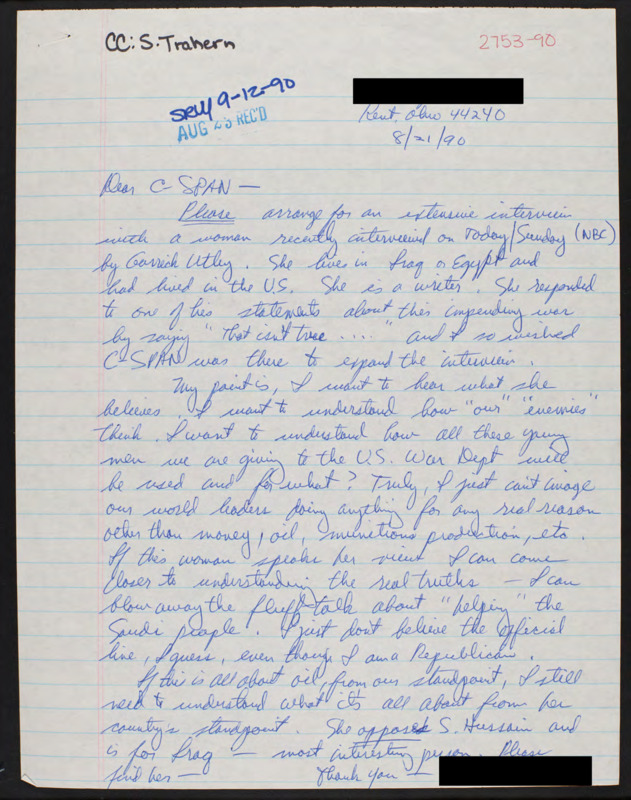 CC: S. Trahern
2753-90
SRW 9-12-90
AUG REC'D
Kent, Ohio 44240
8/21/90
Dear C-SPAN —
Please arrange for an extensive interview
with a woman recently interviewed on Today/Sunday (NBC)
by Garrick Utley. She lives in Iraq or Egypt and
had lived in the U.S. She is a writer. She responded
to one of his statements about this impending war
by saying "That isn't true ...." and I so wished
C-SPAN was there to expand the interview.
My point is, I want to hear what she
believes. I want to understand how "our" "enemies"
think. I want to understand how all these young
men we are giving to the U.S. War Dept will
be used and for what? Truly, I just can't image
our world leaders doing anything for any real reason
other than money, oil, munitions production, etc.
If this woman speaks her views I can come
closer to understanding the real truths — I can
blow away the fluff-talk about "helping" the
Saudi people. I just don't believe the official
line, I guess, even though I am a Republican.
If this is all about oil, from our standpoint, I still
need to understand what it's all about from her
country's standpoint. She opposes S. Hussain and
is for Iraq — most interesting person. Please
find her — Thank you —